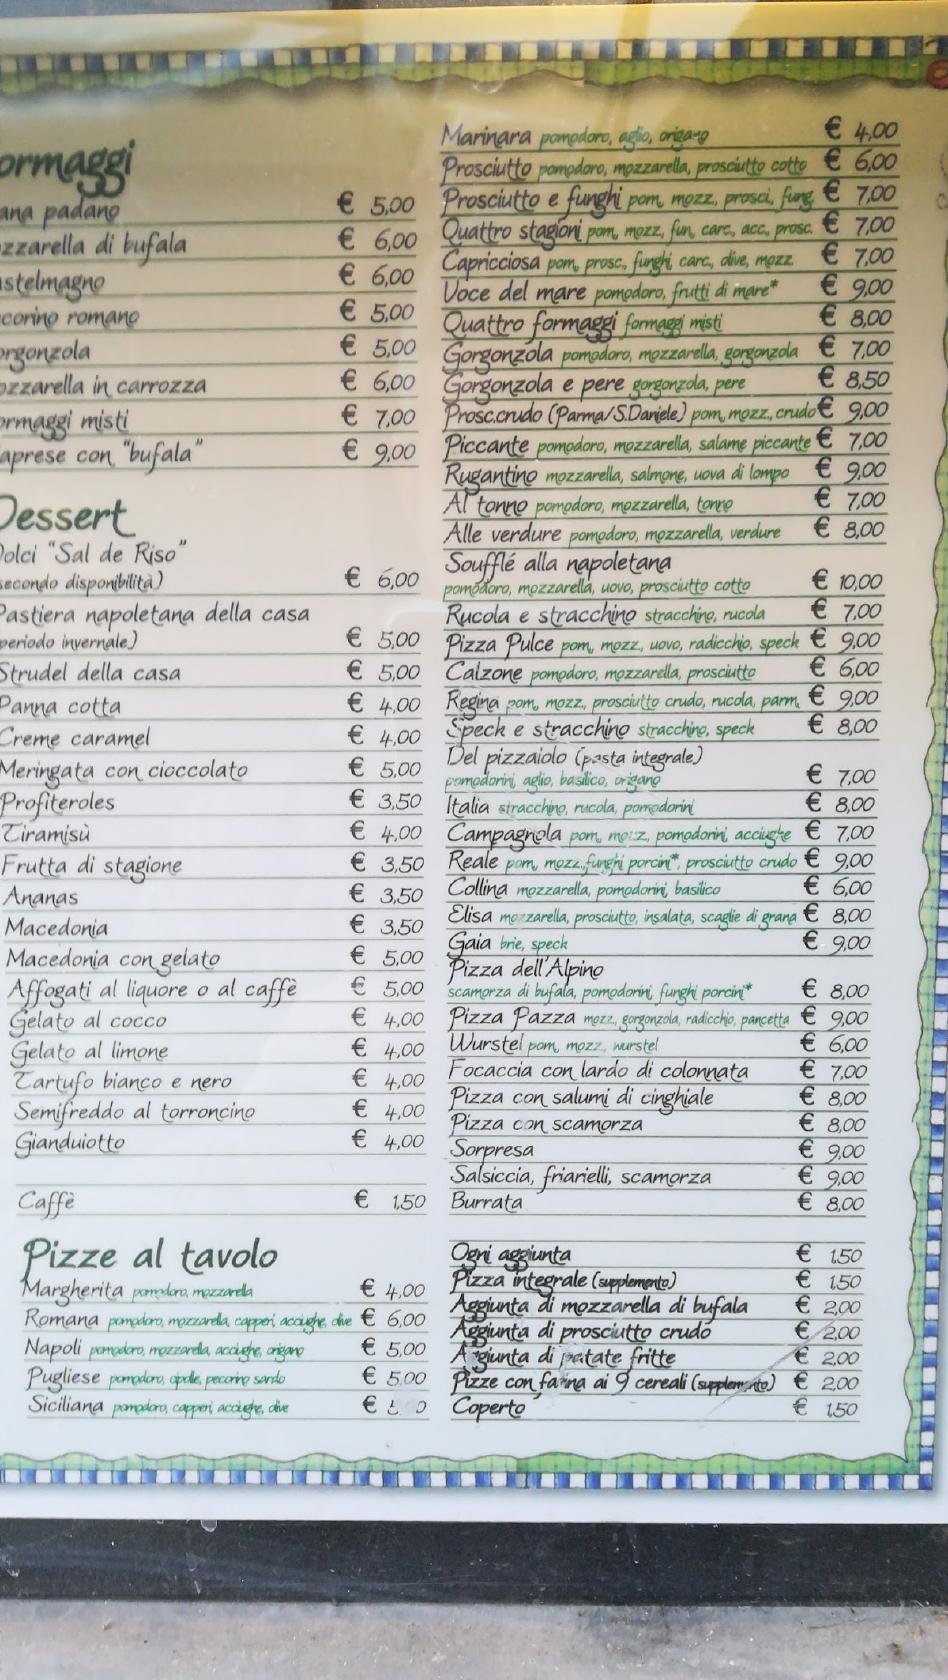 ormaggi
ana padano € 5,00
zzarella di bufala € 6,00
stelmagno € 6,00
corino romano € 5,00
orgonzola € 5,00
ozzarella in carrozza € 6,00
ormaggi misti € 7,00
aprese con "bufala" € 9,00
Dessert
Dolci "Sal de Riso"
secondo disponibilità) € 6,00
Pastiera napoletana della casa
periodo invernale) € 5,00
Strudel della casa € 5,00
Panna cotta € 4,00
Creme caramel € 4,00
Meringata con cioccolato € 5,00
Profiteroles € 3,50
Tiramisù € 4,00
Frutta di stagione € 3,50
Ananas € 3,50
Macedonia € 3,50
Macedonia con gelato € 5,00
Affogati al liquore o al caffè € 5,00
Gelato al cocco € 4,00
Gelato al limone € 4,00
Tartufo bianco e nero € 4,00
Semifreddo al torroncino € 4,00
Gianduiotto € 4,00
Caffè € 1,50
Pizze al tavolo
Margherita pomodoro, mozzarella € 4,00
Romana pomodoro, mozzarella, capperi, acciughe, olive € 6,00
Napoli pomodoro, mozzarella, acciughe, origano € 5,00
Pugliese pomodoro, cipolle, pecorino sardo € 5,00
Siciliana pomodoro, capperi, acciughe, olive €
Marinara pomodoro, aglio, origano € 4,00
Prosciutto pomodoro, mozzarella, prosciutto cotto € 6,00
Prosciutto e funghi pom, mozz, prosci, fung € 7,00
Quattro stagioni pom, mozz, fun, carc, acc, prosc. € 7,00
Capricciosa pom, prosc, funghi, carc, olive, mozz € 7,00
Voce del mare pomodoro, frutti di mare* € 9,00
Quattro formaggi formaggi misti € 8,00
Gorgonzola pomodoro, mozzarella, gorgonzola € 7,00
Gorgonzola e pere gorgonzola, pere € 8,50
Prosc.crudo (Parma/S.Daniele) pom, mozz, crudo € 9,00
Piccante pomodoro, mozzarella, salame piccante € 7,00
Rugantino mozzarella, salmone, uova di lompo € 9,00
Al tonno pomodoro, mozzarella, tonno € 7,00
Alle verdure pomodoro, mozzarella, verdure € 8,00
Soufflé alla napoletana
pomodoro, mozzarella, uovo, prosciutto cotto € 10,00
Rucola e stracchino stracchino, rucola € 7,00
Pizza Pulce pom, mozz, uovo, radicchio, speck € 9,00
Calzone pomodoro, mozzarella, prosciutto € 6,00
Regina pom, mozz, prosciutto crudo, rucola, parm. € 9,00
Speck e stracchino stracchino, speck € 8,00
Del pizzaiolo (pasta integrale)
pomodorini, aglio, basilico, origano € 7,00
Italia stracchino, rucola, pomodorini € 8,00
Campagnola pom, mozz, pomodorini, acciughe € 7,00
Reale pom, mozz, funghi porcini*, prosciutto crudo € 9,00
Collina mozzarella, pomodorini, basilico € 6,00
Elisa mozzarella, prosciutto, insalata, scaglie di grana € 8,00
Gaia brie, speck € 9,00
Pizza dell'Alpino
scamorza di bufala, pomodorini, funghi porcini* € 8,00
Pizza Pazza mozz, gorgonzola, radicchio, pancetta € 9,00
Wurstel pom, mozz, wurstel € 6,00
Focaccia con lardo di colonnata € 7,00
Pizza con salumi di cinghiale € 8,00
Pizza con scamorza € 8,00
Sorpresa € 9,00
Salsiccia, friarielli, scamorza € 9,00
Burrata € 8,00
Ogni aggiunta € 1,50
Pizza integrale (supplemento) € 1,50
Aggiunta di mozzarella di bufala € 2,00
Aggiunta di prosciutto crudo € 2,00
Aggiunta di patate fritte € 2,00
Pizze con farina ai 9 cereali (supplemento) € 2,00
Coperto € 1,50